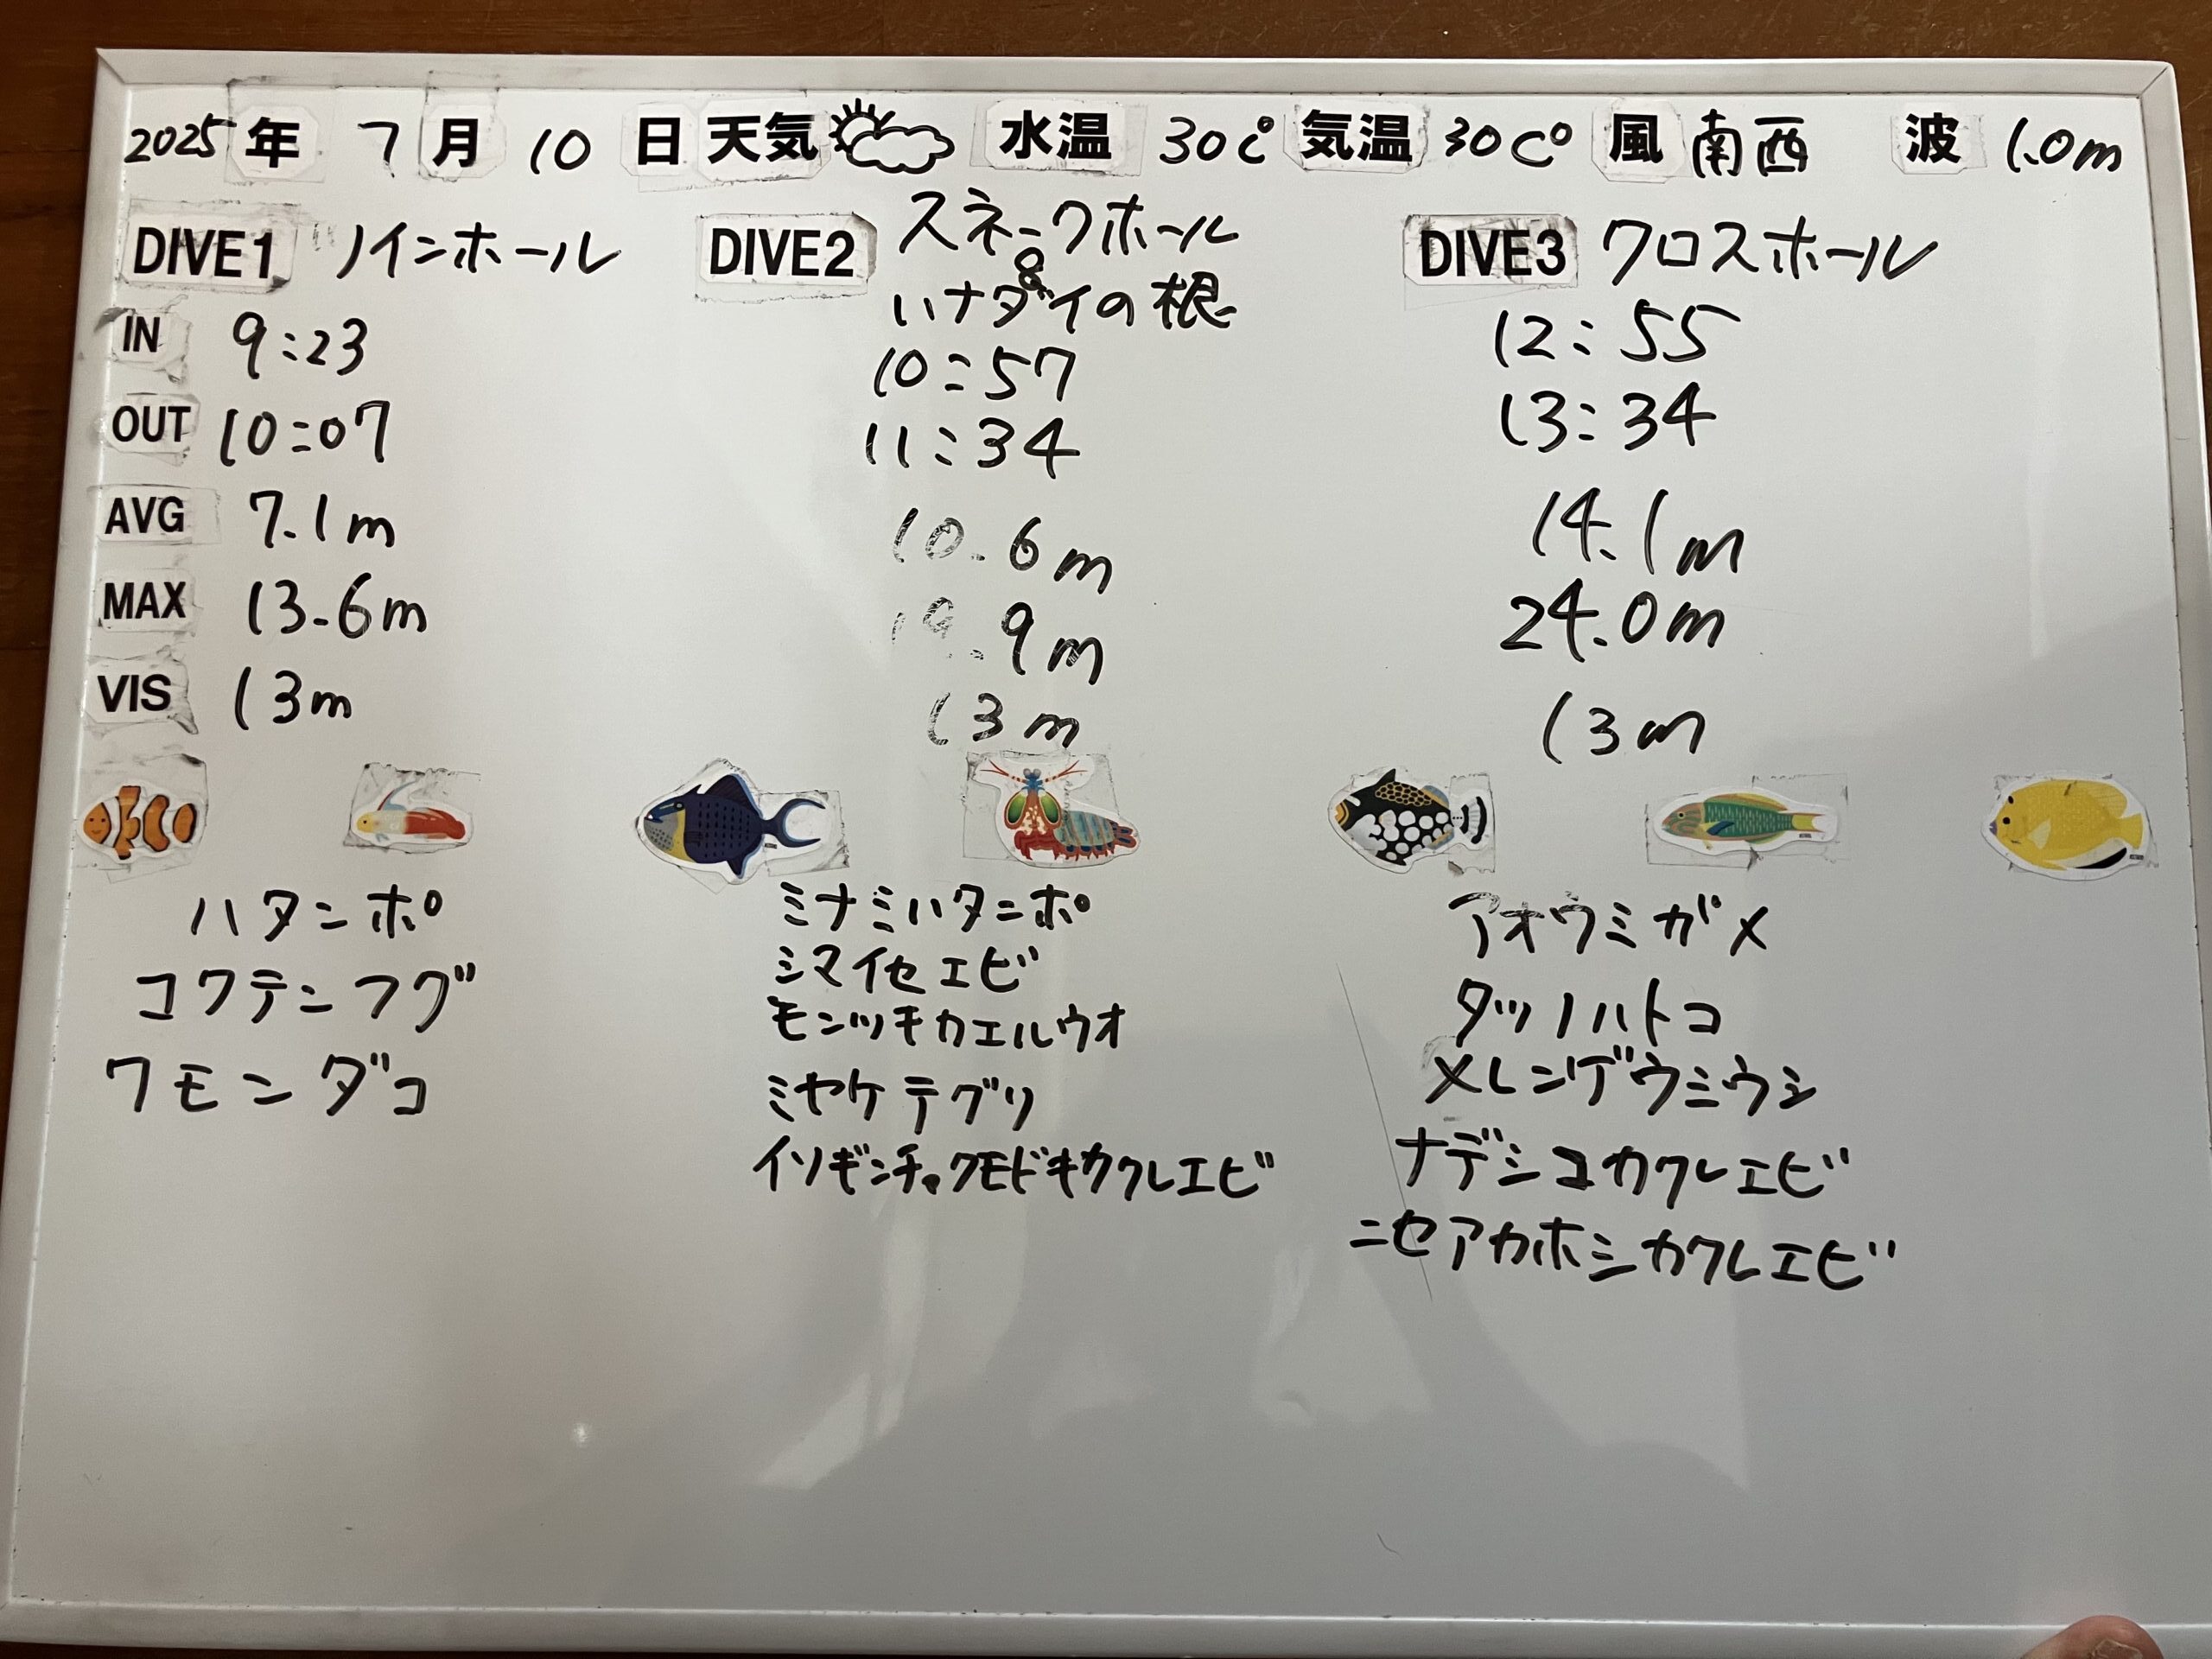 2025 年 7 月 10 日 天気 水温 30℃ 気温 30C° 風 南西 波 1.0m
DIVE1 ノインホール DIVE2 スネークホール & ハナダイの根 DIVE3 クロスホール
IN 9:23 10:57 12:55
OUT 10:07 11:34 13:34
AVG 7.1m 10.6m 14.1m
MAX 13.6m 19.9m 24.0m
VIS 13m 13m 13m
ハタンポ
コクテンフグ
ワモンダコ
ミナミハタンポ
シマイセエビ
モンツキカエルウオ
ミヤケテグリ
イソギンチャクモドキカクレエビ
アオウミガメ
タツノハトコ
メレンゲウミウシ
ナデシコカクレエビ
ニセアカホシカクレエビ